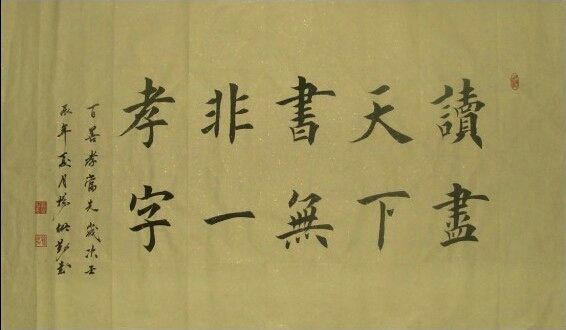 讀盡
天下
書無
非一
孝字
百善孝當先歲次壬
辰年夏月